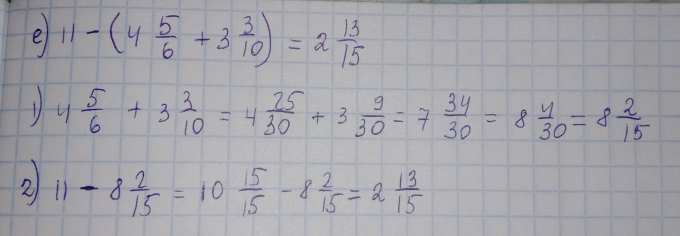 е) 11 - (4 5/6 + 3 3/10) = 2 13/15
1) 4 5/6 + 3 3/10 = 4 25/30 + 3 9/30 = 7 34/30 = 8 4/30 = 8 2/15
2) 11 - 8 2/15 = 10 15/15 - 8 2/15 = 2 13/15